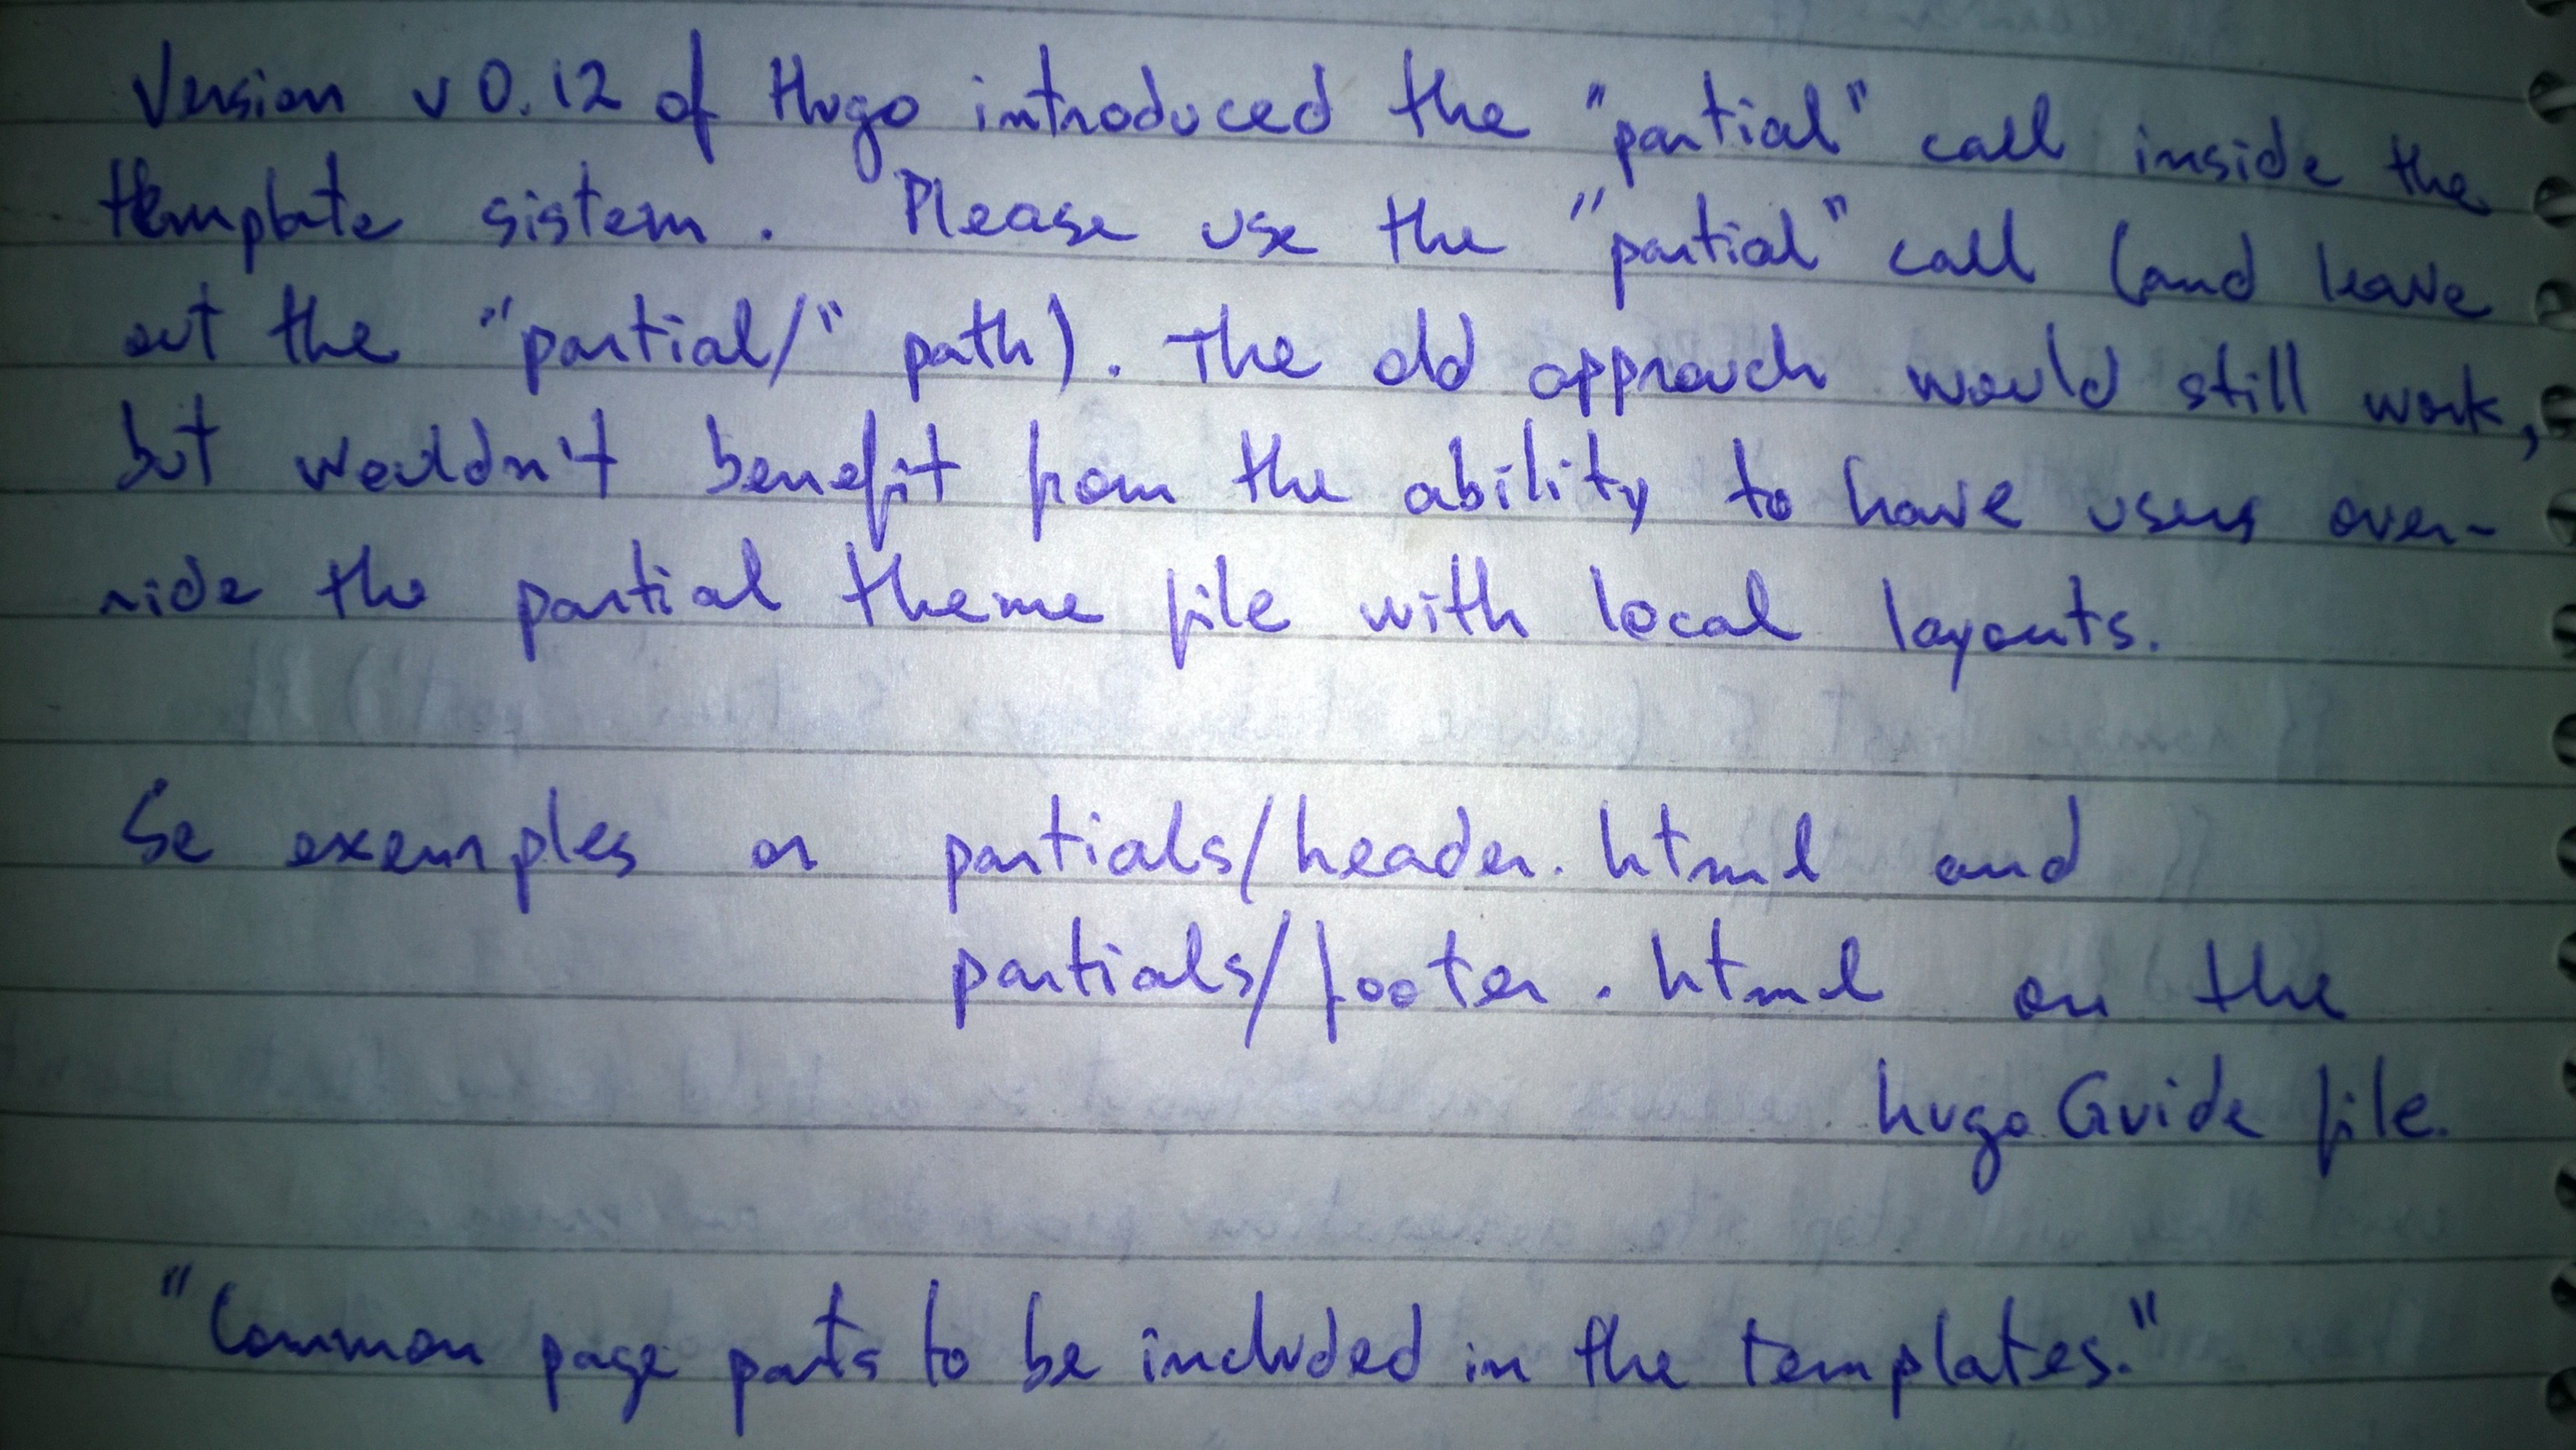 Version v 0.12 of Hugo introduced the "partial" call inside the
template sistem. Please use the "partial" call (and leave
out the "partial/" path). The old approach would still work,
but wouldn't benefit from the ability to have users over-
ride the partial theme file with local layouts.
Se exemples or partials/header.html and
partials/footer.html on the
hugo Guide file.
"Common page parts to be included in the templates."